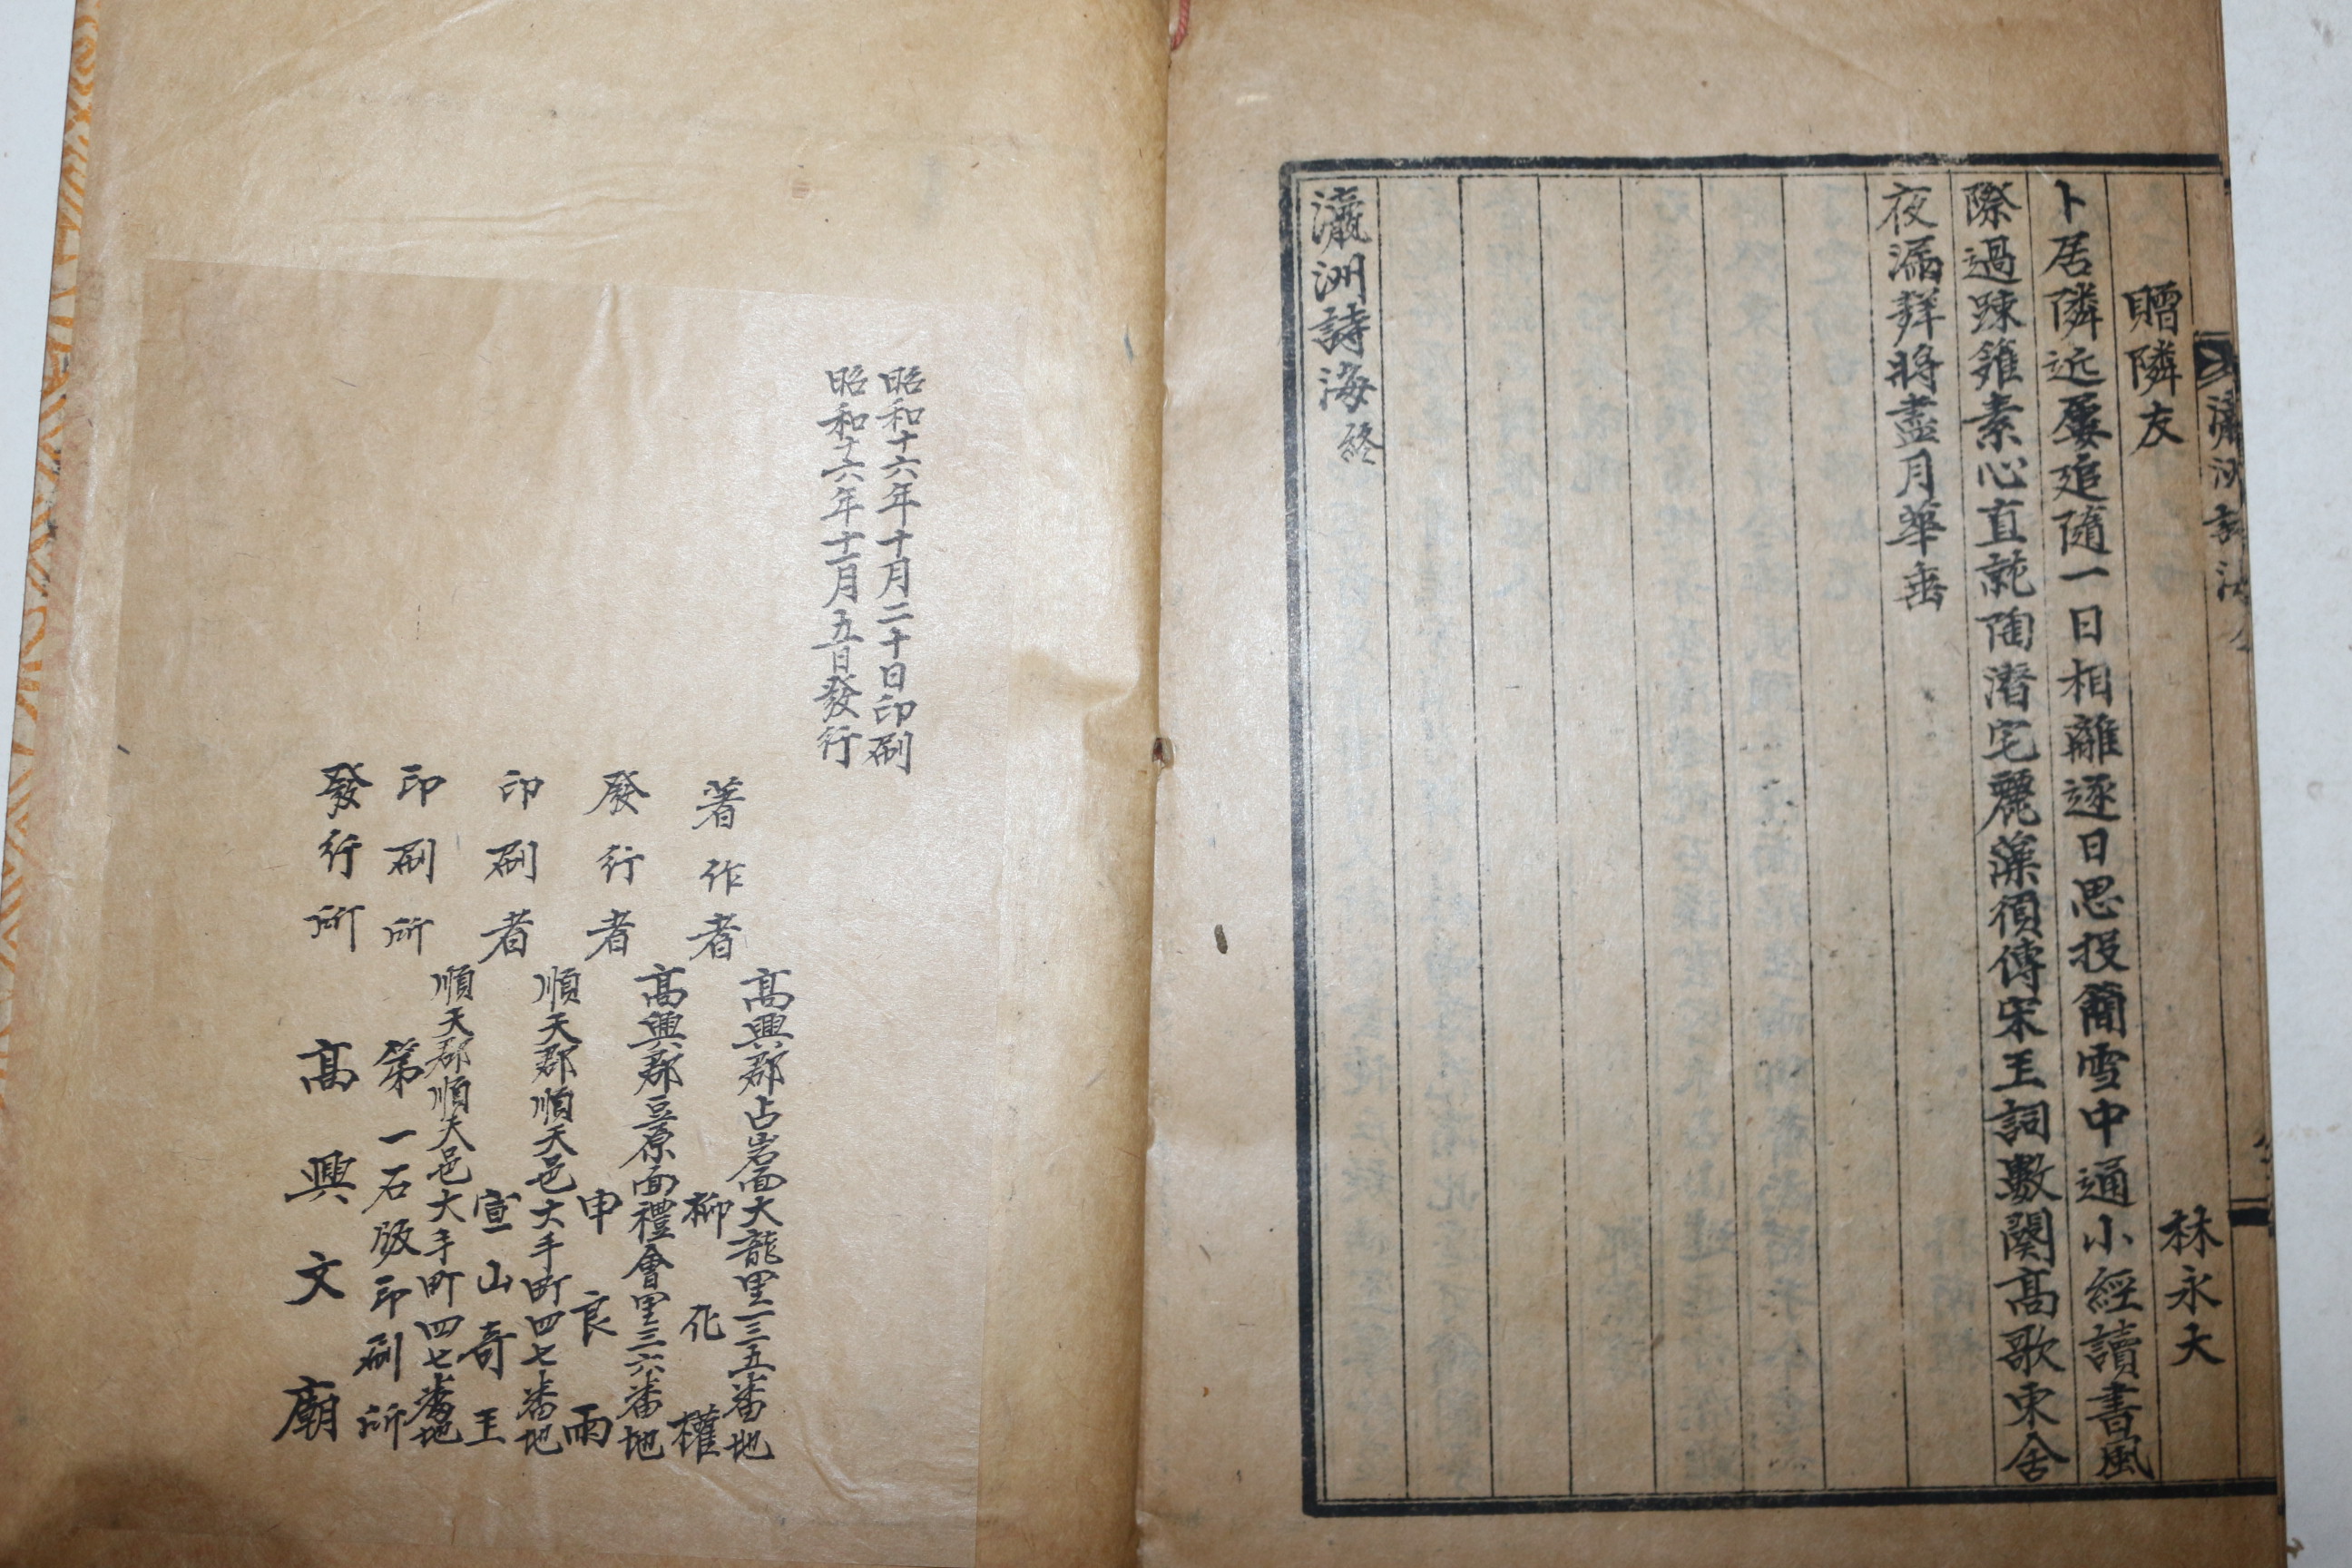 瀛洲詩海
贈隣友
林永大
卜居隣近屢追隨一日相離逐日思投簡雪中通小經讀書風
際過踈籬素心直就陶潛宅麗藻須傳宋玉詞數闋高歌東舍
夜漏鮮將盡月華垂
瀛洲詩海終
昭和十六年十月二十日印刷
昭和十六年十一月五日發行
著作者
高興郡占岩面大龍里一三五番地
柳化權
發行者
高興郡豆原面禮會里三六番地
申良雨
印刷者
順天郡順天邑大手町四七番地
宣山奇王
印刷所
順天郡順天邑大手町四七番地
第一石版印刷所
發行所
高興文廟